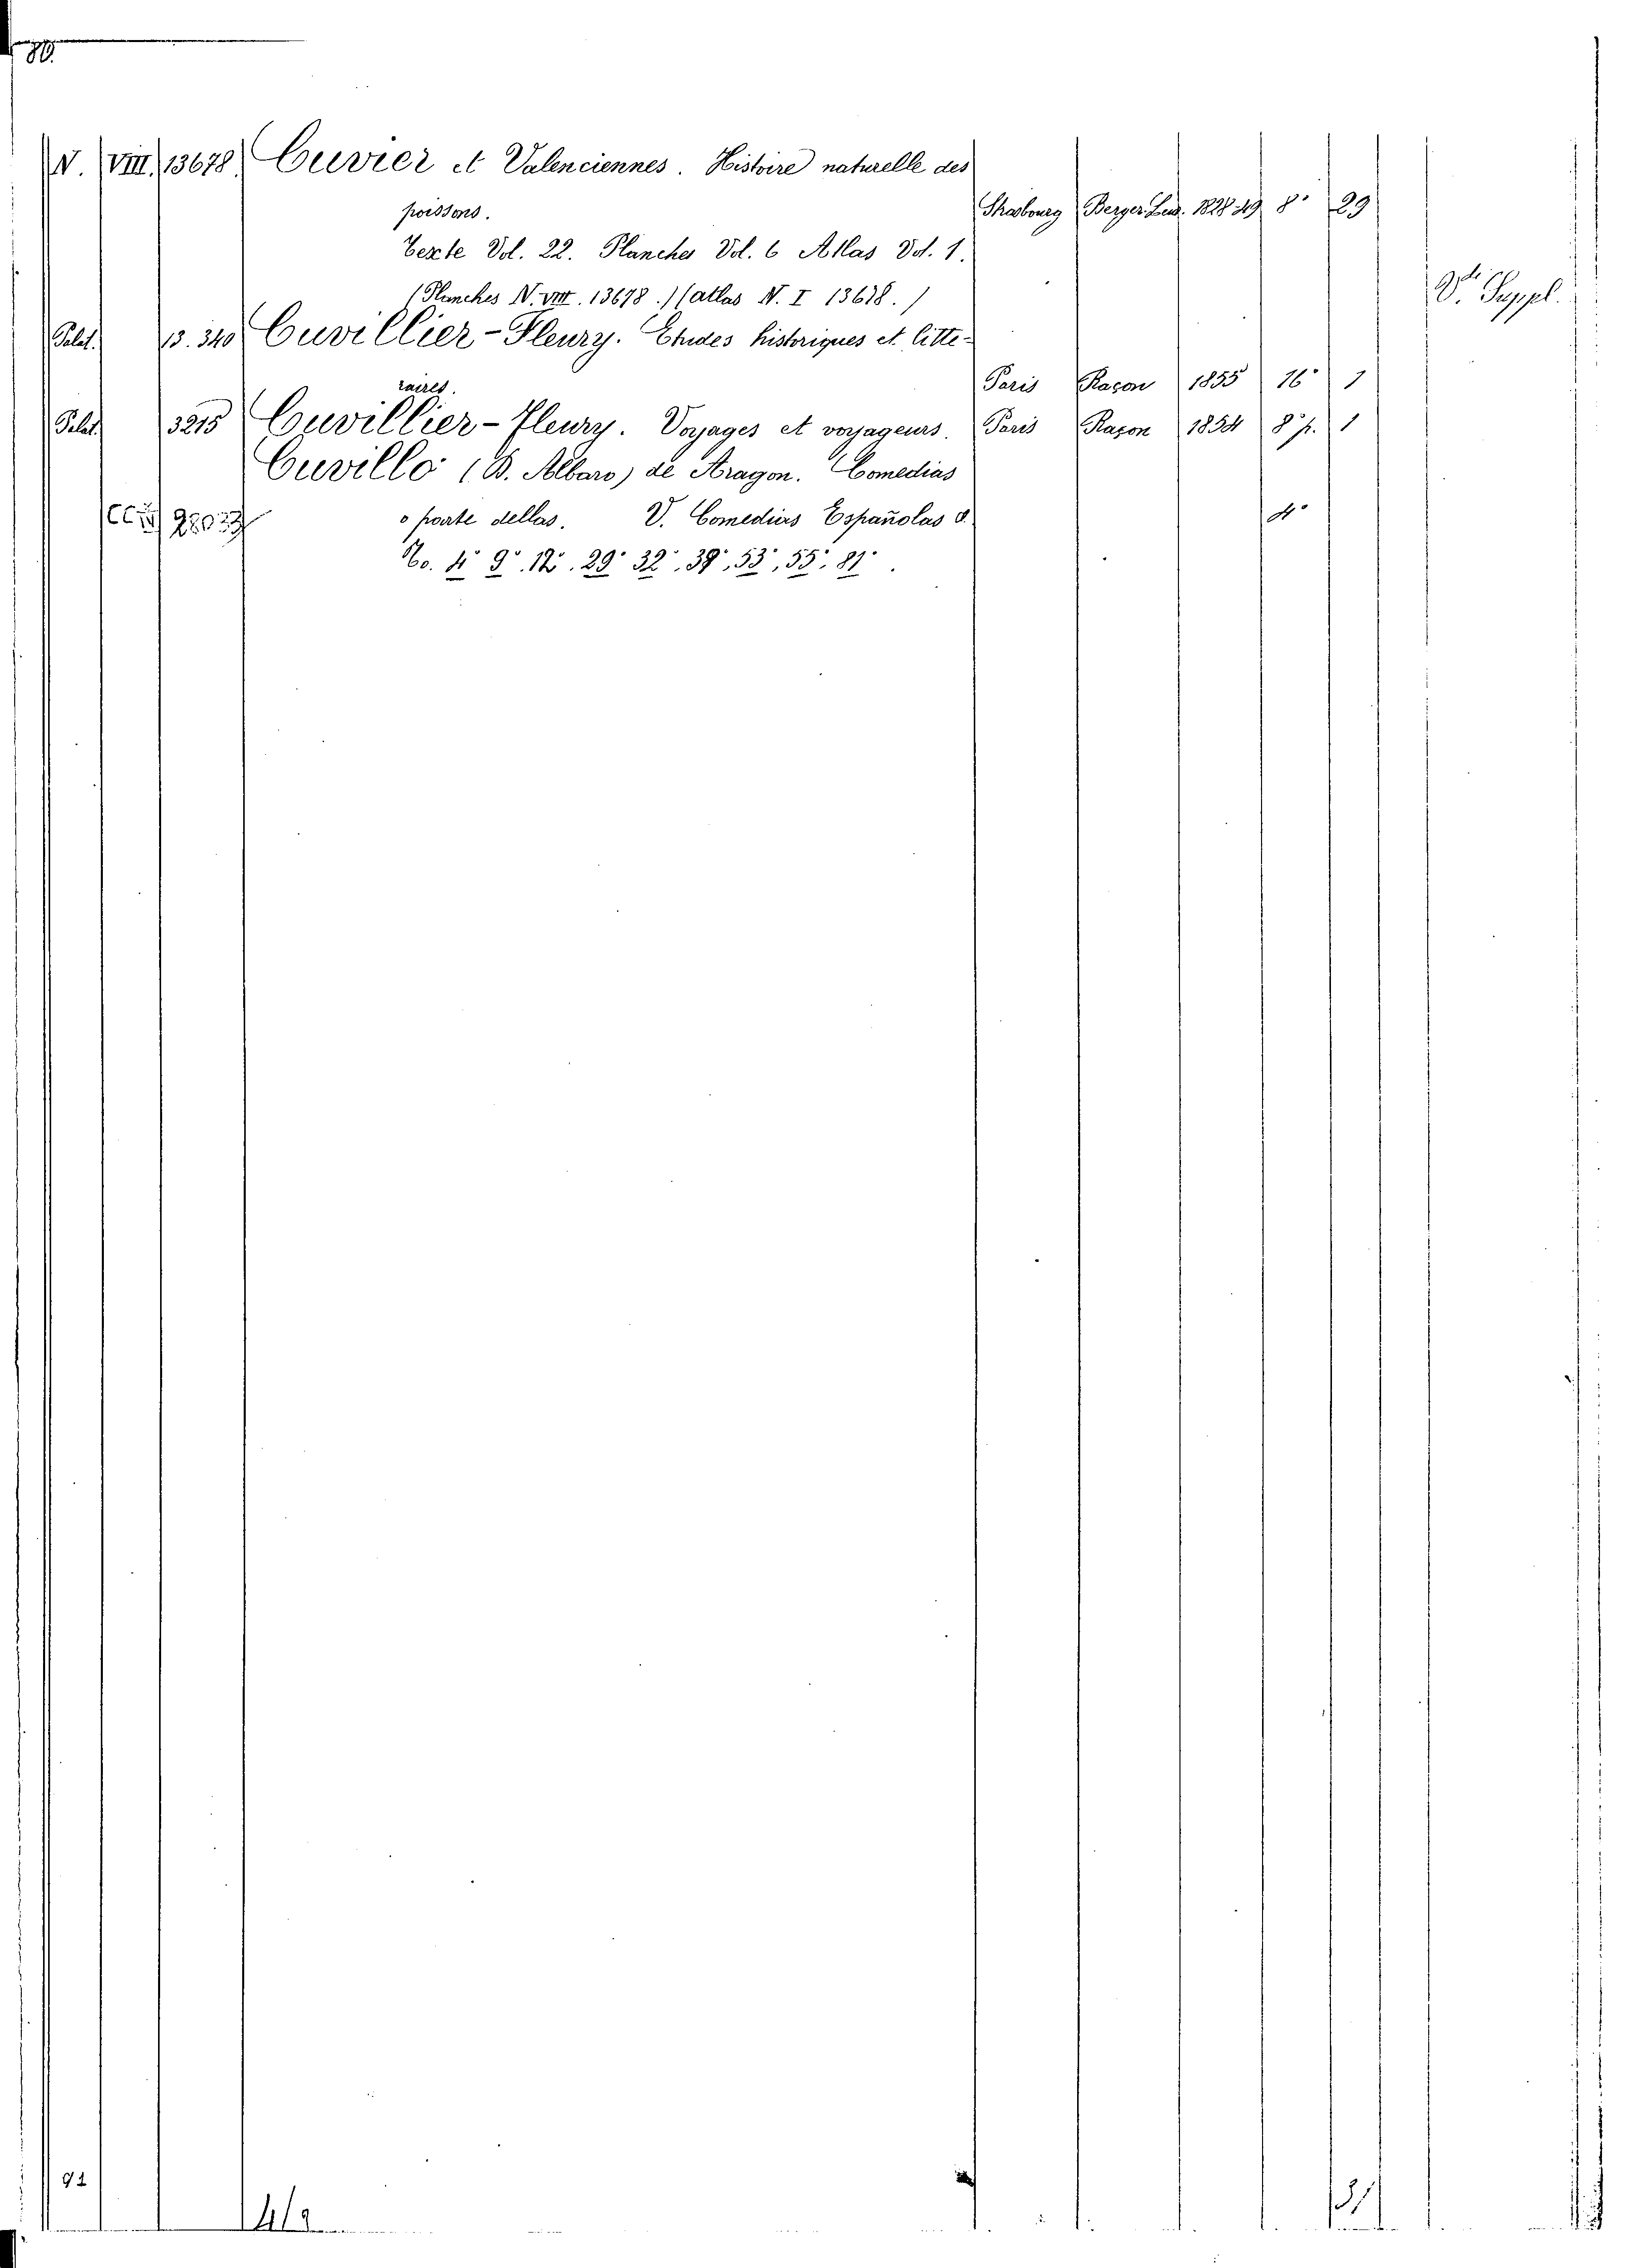 80.
V. VIII. 13678 Cuvier et Valenciennes. Histoire naturelle des
poissons. Strasbourg Berger Lev. 1828-49 8° 29
Texte Vol. 22. Planches Vol. 6 Atlas Vol. 1.
(Planches N. VIII. 13678.) (atlas N. I 13678.) Vdi Suppl.
Palat. 13.340 Cuvillier-Fleury. Etudes historiques et litte-
raires. Paris Raçon 1855 16° 1
Palat. 3215 Cuvillier-Fleury. Voyages et voyageurs. Paris Raçon 1854 8° p. 1
Cuvillo (B. Albaro) de Aragon. Comedias
o parte dellas. V. Comedias Españolas 4°
No. 4° 9° 12°. 29° 32°. 39°, 53°, 55°. 81°.
92
4/2 31